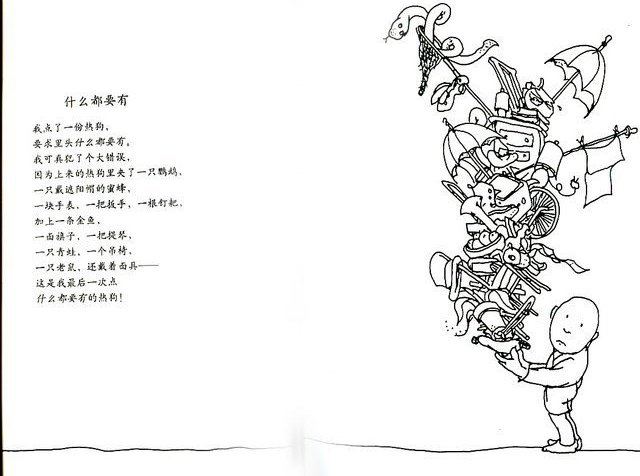 什么都要有
我点了一份热狗，
要求里头什么都要有。
我可真犯了个大错误，
因为上来的热狗里夹了一只鹦鹉，
一只戴遮阳帽的蜜蜂，
一块手表，一把扳手，一根钉耙。
加上一条金鱼，
一面旗子，一把提琴，
一只青蛙，一个吊椅，
一只老鼠，还戴着面具——
这是我最后一次点
什么都要有的热狗！